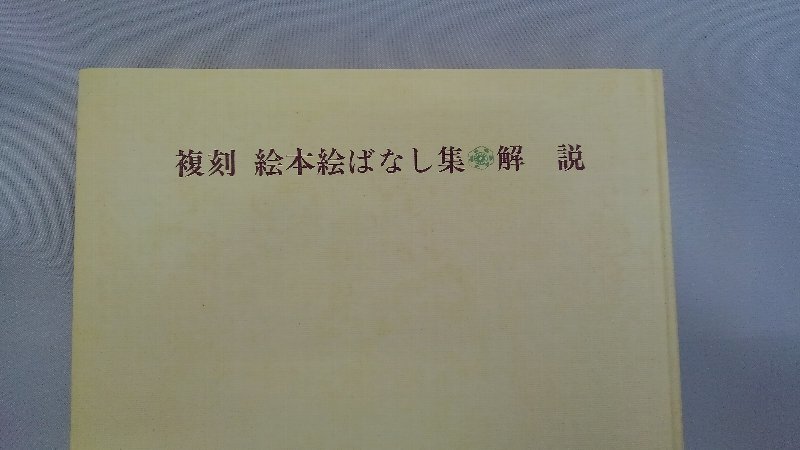 複刻 絵本絵ばなし集 解 説